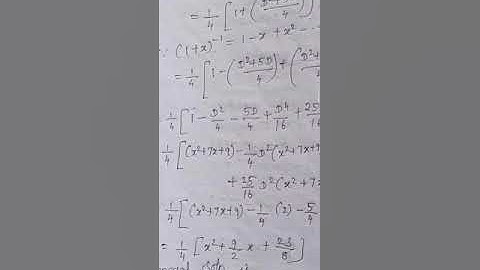 = 1/4 [1 + (D²+5D/4)]
∵ (1+x)⁻¹ = 1 - x + x² - ...
= 1/4 [1 - (D²+5D/4) + (D²+
1/4 [1 - D²/4 - 5D/4 + D⁴/16 + 25/16
1/4 [(x²+7x+9) - 1/4 D²(x²+7x+9
+ 25/16 D²(x²+7x
1/4 [(x²+7x+9) - 1/4 (2) - 5/4
= 1/4 [x² + 9/2 x + 23/8]